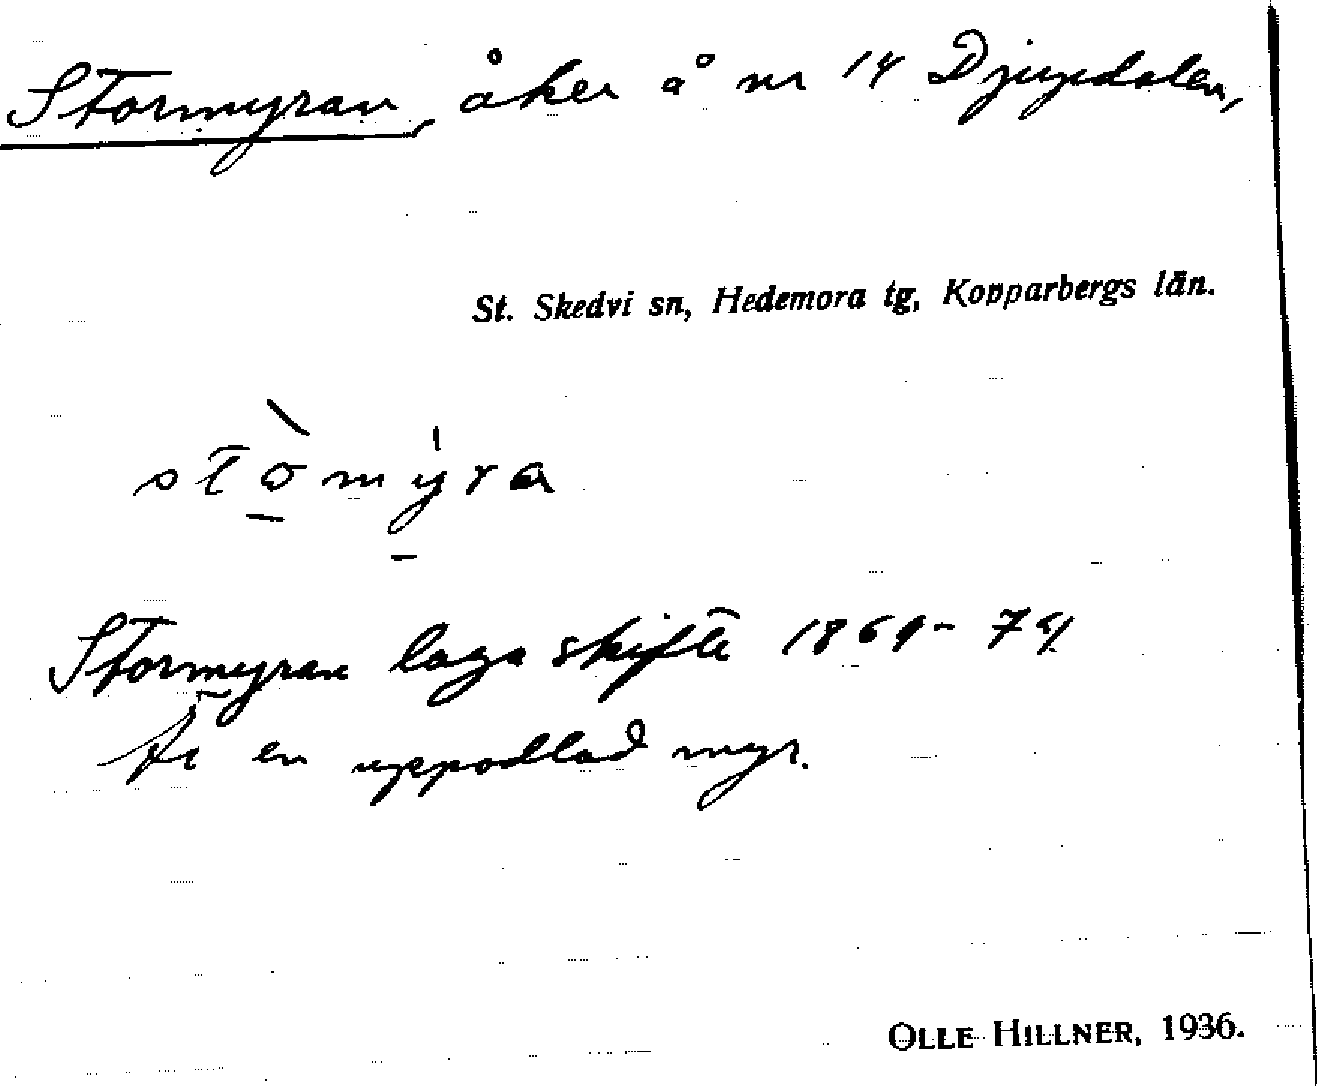 Stormyran, åker å nr 14 Djupdalen,
St. Skedvi sn, Hedemora tg, Kopparbergs län.
stòmýra
Stormyran laga skifte 1869-74
Är en uppodlad myr.
OLLE HILLNER, 1936.